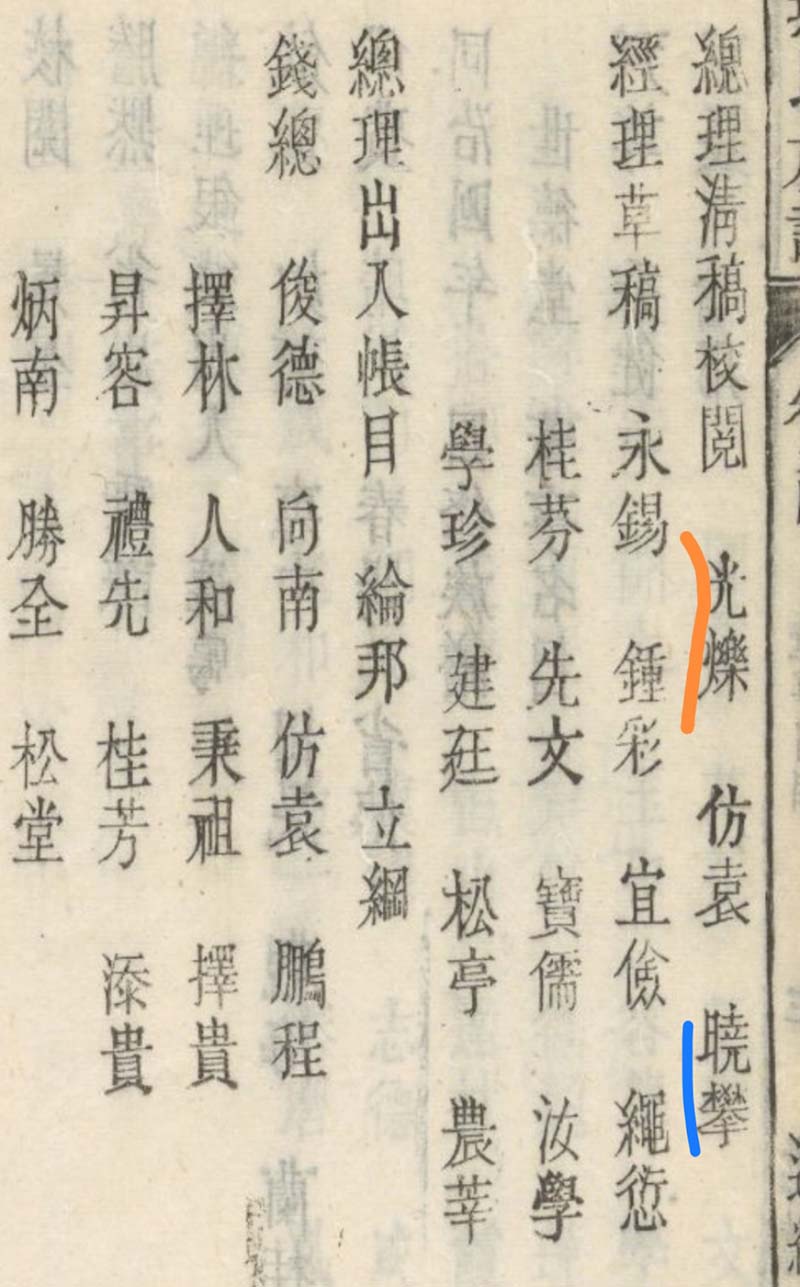 總理淸稿校閱 光爍 仿袁 曉攀
經理草稿 永錫 鍾彩 宜儉 繩愆
桂芬 先文 寶儒 汝學
學珍 建廷 松亭 農莘
總理出入帳目 綸邦 立綱
錢總 俊德 向南 仿袁 鵬程
擇林 人和 秉祖 擇貴
昇容 禮先 桂芳 添貴
炳南 勝全 松堂